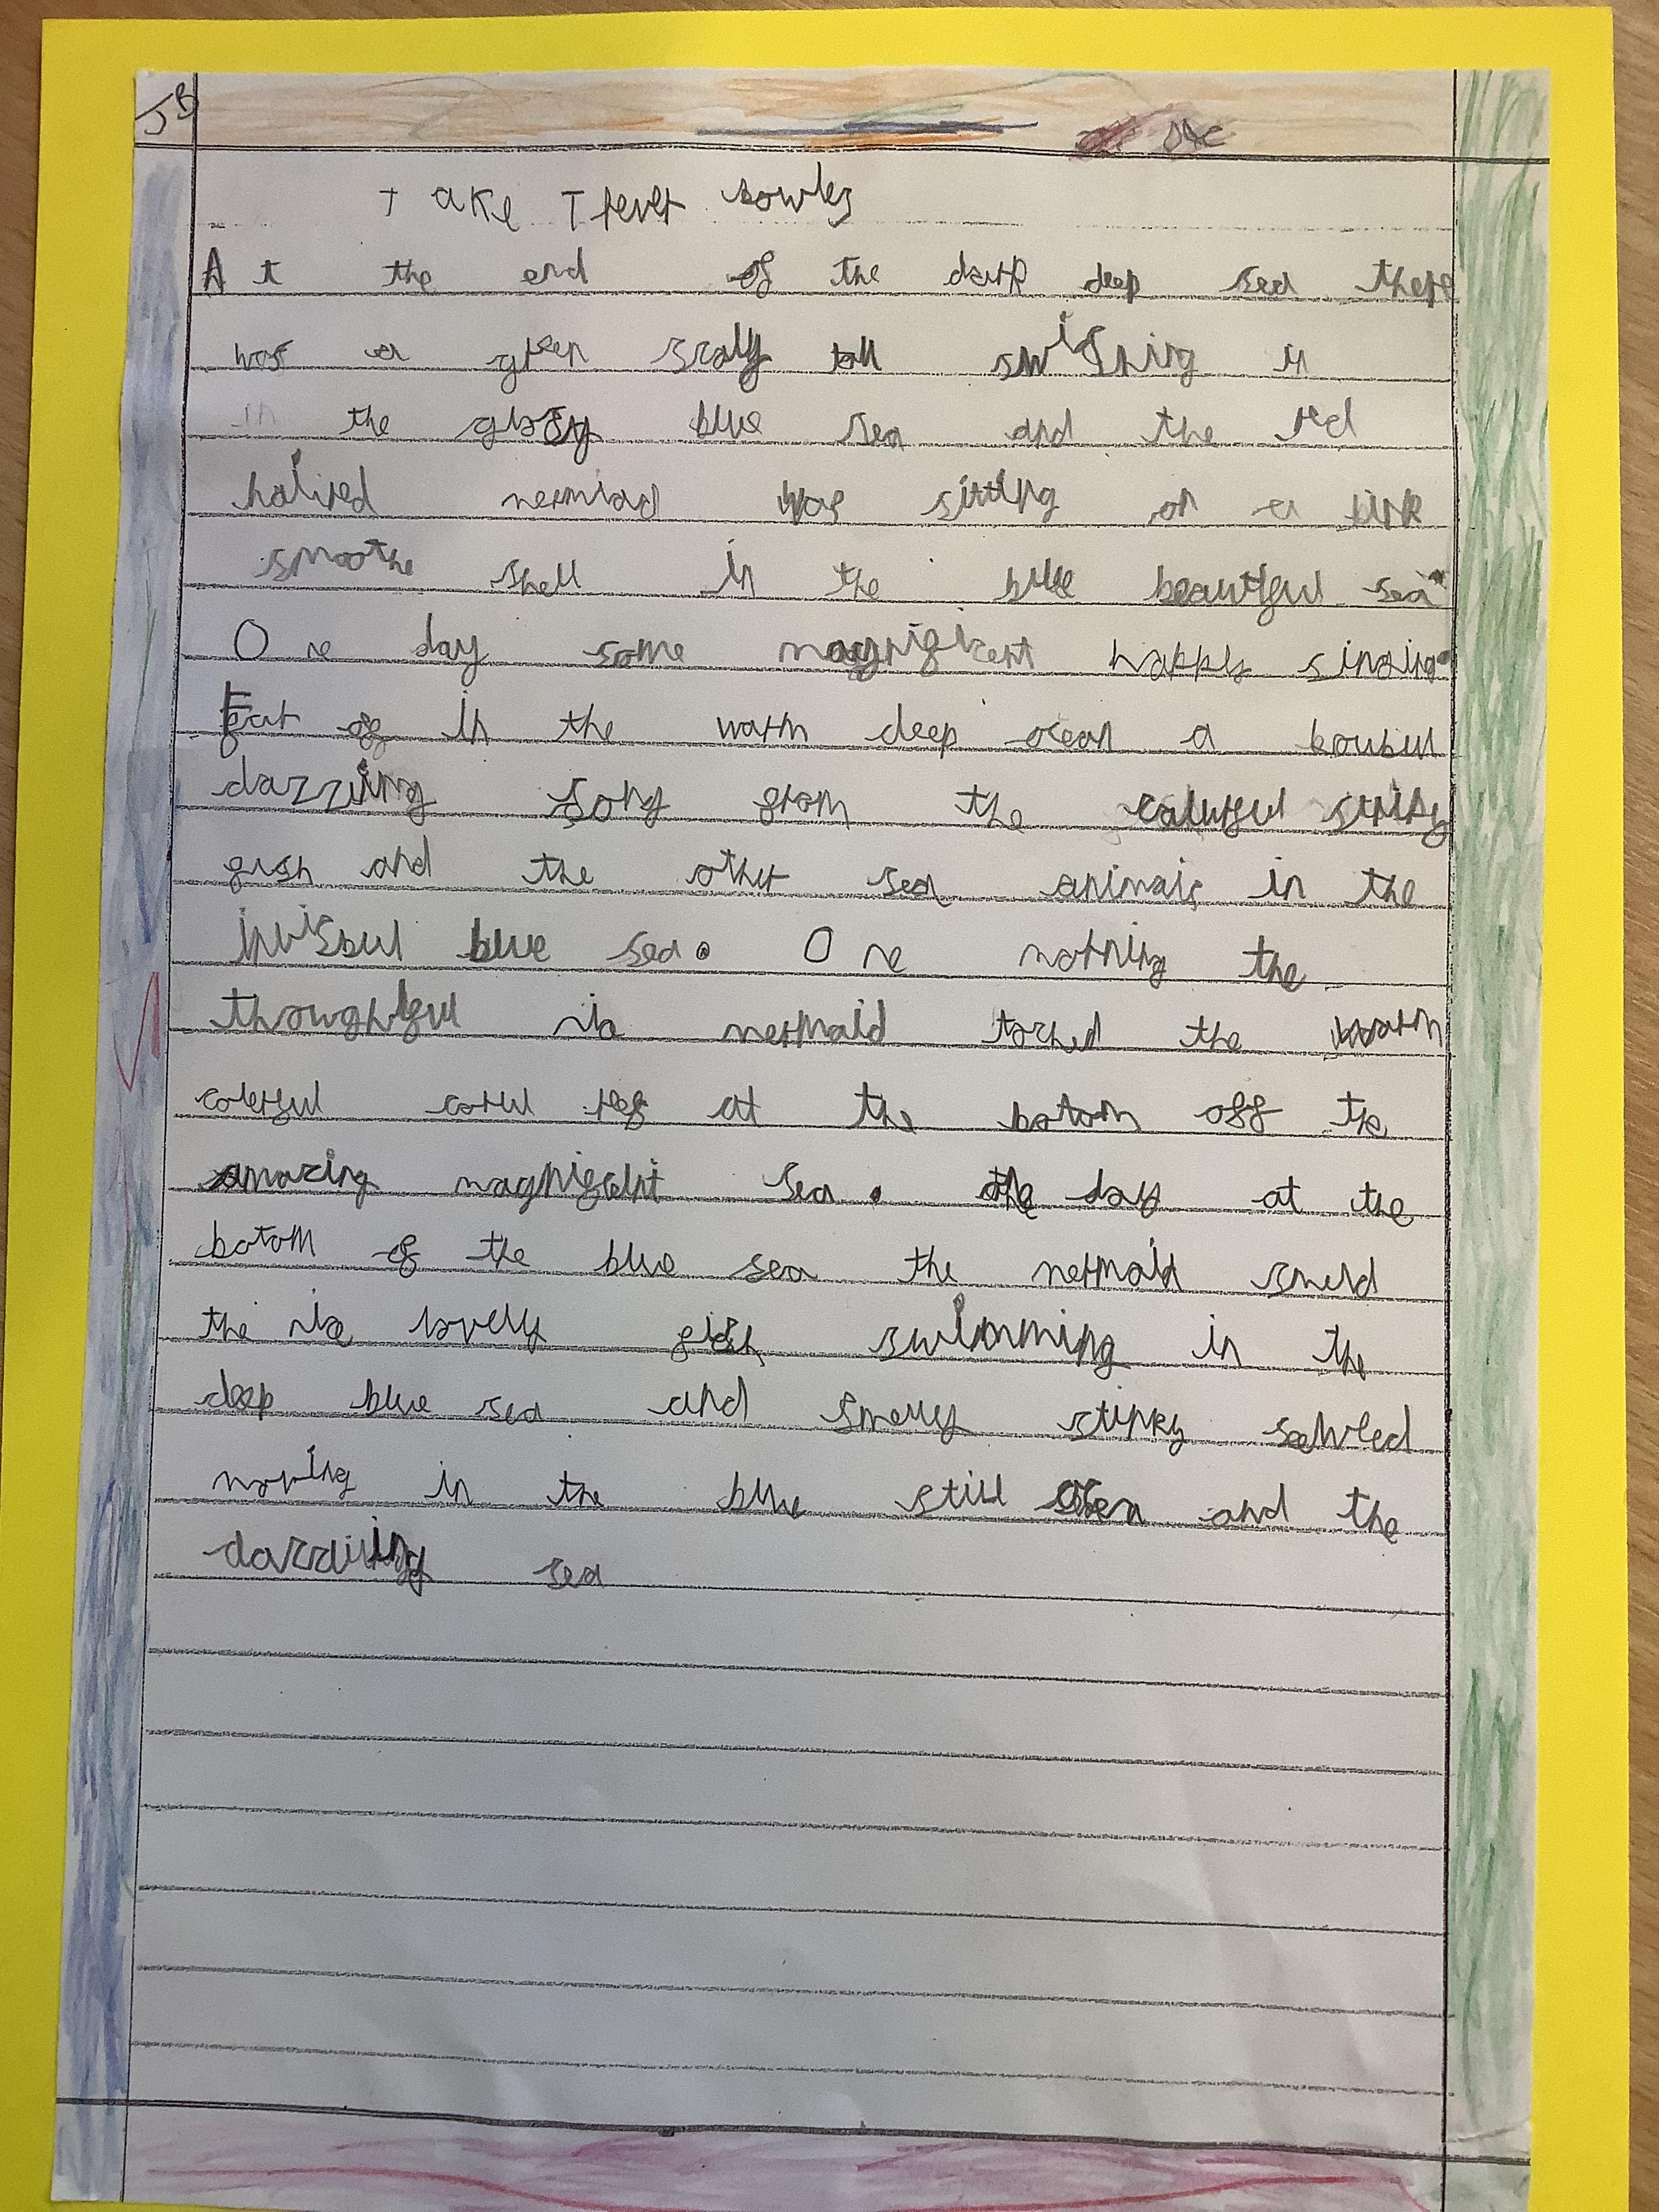 JB
Jake Trever Bowles
At the end of the dark deep sea there
was a green scaly tall swishing in
in the glassy blue sea and the red
halired mermiad was sitting on a pink
smoothe shell in the blue beautiful sea
One day some magnificent happy singing
in the warm deep ocean a
dazzling song from the calurful stripy
fish and the other sea animals in the
invisbul blue sea. One morning the
thoughtful nice mermaid toched the warm
colerful corul ref at the botom off the
amazing magnificent sea. One day at the
botom of the blue sea the mermaid smeld
the nice lovely fish swimming in the
deep blue sea and smelly stinky seaweed
moving in the blue still and the
dazzling sea